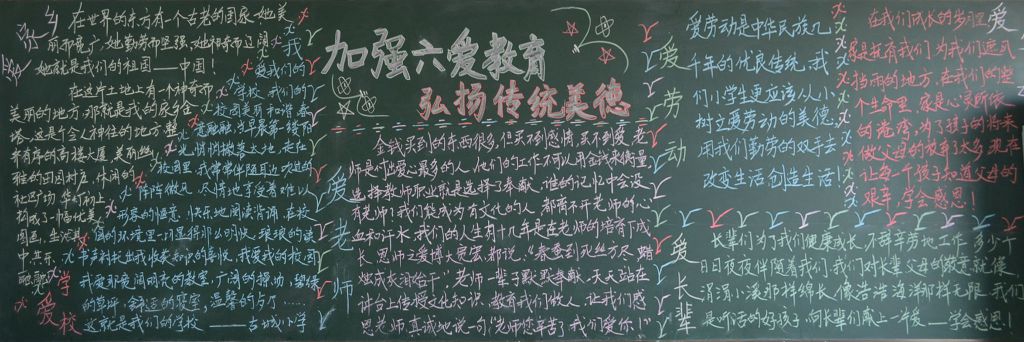 爱乡
在世界的东方有一个古老的国家,她美
丽而宽广,她勤劳而坚强,她神奇而辽阔
她就是我们的祖国——中国!
在这片土地上有一个神奇而
美丽的地方,那就是我的家乡金
塔,这是个令人神往的地方,整
齐有序的高楼大厦,美丽幽
雅的田园村庄,休闲的
社区广场,华灯初上
构成了一幅优美
图画,生活其
中其乐
融融
爱学校
我
爱我们的
学校,我们的
校园美丽和谐,春
意融融,当早晨第一缕阳
光悄悄撒落大地,走在
校园里,我常常伴随耳边吹过的
阵阵微风,尽情地享受着难以
形容的惬意,快乐地阅读背诵,在校
园的环境里一切显得那么明快,琅琅的读
书声衬托出我们收获知识的喜悦,我爱我的校园
我爱那宽阔明亮的教室,广阔的操场,碧绿
的草坪,舒适的寝室,温馨的片片....
这就是我们的学校——古城小学
加强六爱教育
弘扬传统美德
爱老师
金钱买到的东西很多,但买不到感情,买不到爱,老
师是付出爱心最多的人,他们的工作不可以用金钱来衡量
选择教师职业就是选择了奉献,谁的记忆中会没
有老师?我们能成为有文化的人,都离不开老师的心
血和汗水,我们的人生有十几年是在老师的培育下成
长,恩师之爱博大宽宏,都说:“春蚕到死丝方尽,蜡
烛成灰泪始干,”老师一辈子默默奉献,天天站在
讲台上传授文化知识,教育我们做人,让我们感
恩老师,真诚地说一句:“老师您辛苦,我们爱你!”
爱劳动
爱劳动是中华民族几
千年的优良传统,我
们小学生更应该从小
树立爱劳动的美德,
用我们勤劳的双手去
改变生活创造生活!
爱
在我们成长的岁月里
家是抚育我们,为我们遮风
挡雨的地方,在我们的整
个生命里,家是心灵断依
的港湾,为了孩子的将来
做父母的放弃了太多,现在
让每一个孩子知道父母的
艰辛,学会感恩!
爱长辈
长辈们为了我们健康成长,不辞辛劳地工作,多少个
日日夜夜伴随着我们,我们对长辈父母的敬意就像
涓涓小溪那样绵长,像浩浩海洋那样无限,我们
是听话的好孩子,向长辈们献上一片爱——学会感恩!